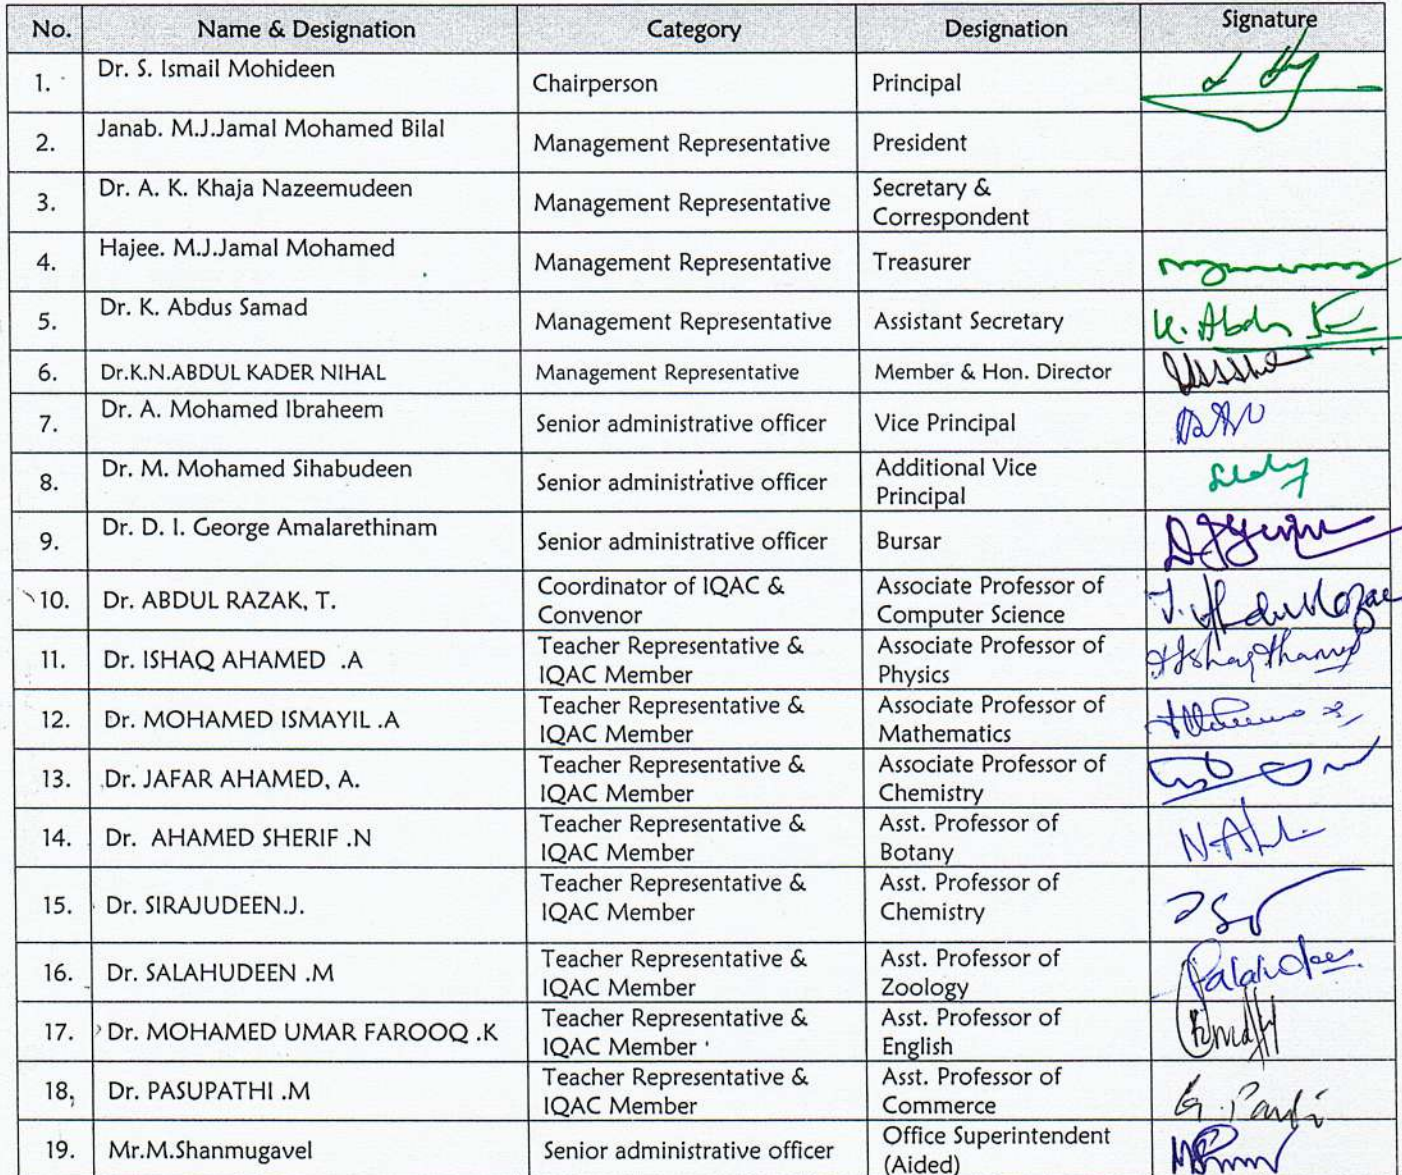 No. Name & Designation Category Designation Signature
1. Dr. S. Ismail Mohideen Chairperson Principal
2. Janab. M.J.Jamal Mohamed Bilal Management Representative President
3. Dr. A. K. Khaja Nazeemudeen Management Representative Secretary &
Correspondent
4. Hajee. M.J.Jamal Mohamed Management Representative Treasurer
5. Dr. K. Abdus Samad Management Representative Assistant Secretary
6. Dr.K.N.ABDUL KADER NIHAL Management Representative Member & Hon. Director
7. Dr. A. Mohamed Ibraheem Senior administrative officer Vice Principal
8. Dr. M. Mohamed Sihabudeen Senior administrative officer Additional Vice
Principal
9. Dr. D. I. George Amalarethinam Senior administrative officer Bursar
10. Dr. ABDUL RAZAK, T. Coordinator of IQAC & Associate Professor of
Convenor Computer Science
11. Dr. ISHAQ AHAMED .A Teacher Representative & Associate Professor of
IQAC Member Physics
12. Dr. MOHAMED ISMAYIL .A Teacher Representative & Associate Professor of
IQAC Member Mathematics
13. Dr. JAFAR AHAMED, A. Teacher Representative & Associate Professor of
IQAC Member Chemistry
14. Dr. AHAMED SHERIF .N Teacher Representative & Asst. Professor of
IQAC Member Botany
15. Dr. SIRAJUDEEN.J. Teacher Representative & Asst. Professor of
IQAC Member Chemistry
16. Dr. SALAHUDEEN .M Teacher Representative & Asst. Professor of
IQAC Member Zoology
17. Dr. MOHAMED UMAR FAROOQ .K Teacher Representative & Asst. Professor of
IQAC Member English
18, Dr. PASUPATHI .M Teacher Representative & Asst. Professor of
IQAC Member Commerce
19. Mr.M.Shanmugavel Senior administrative officer Office Superintendent
(Aided)